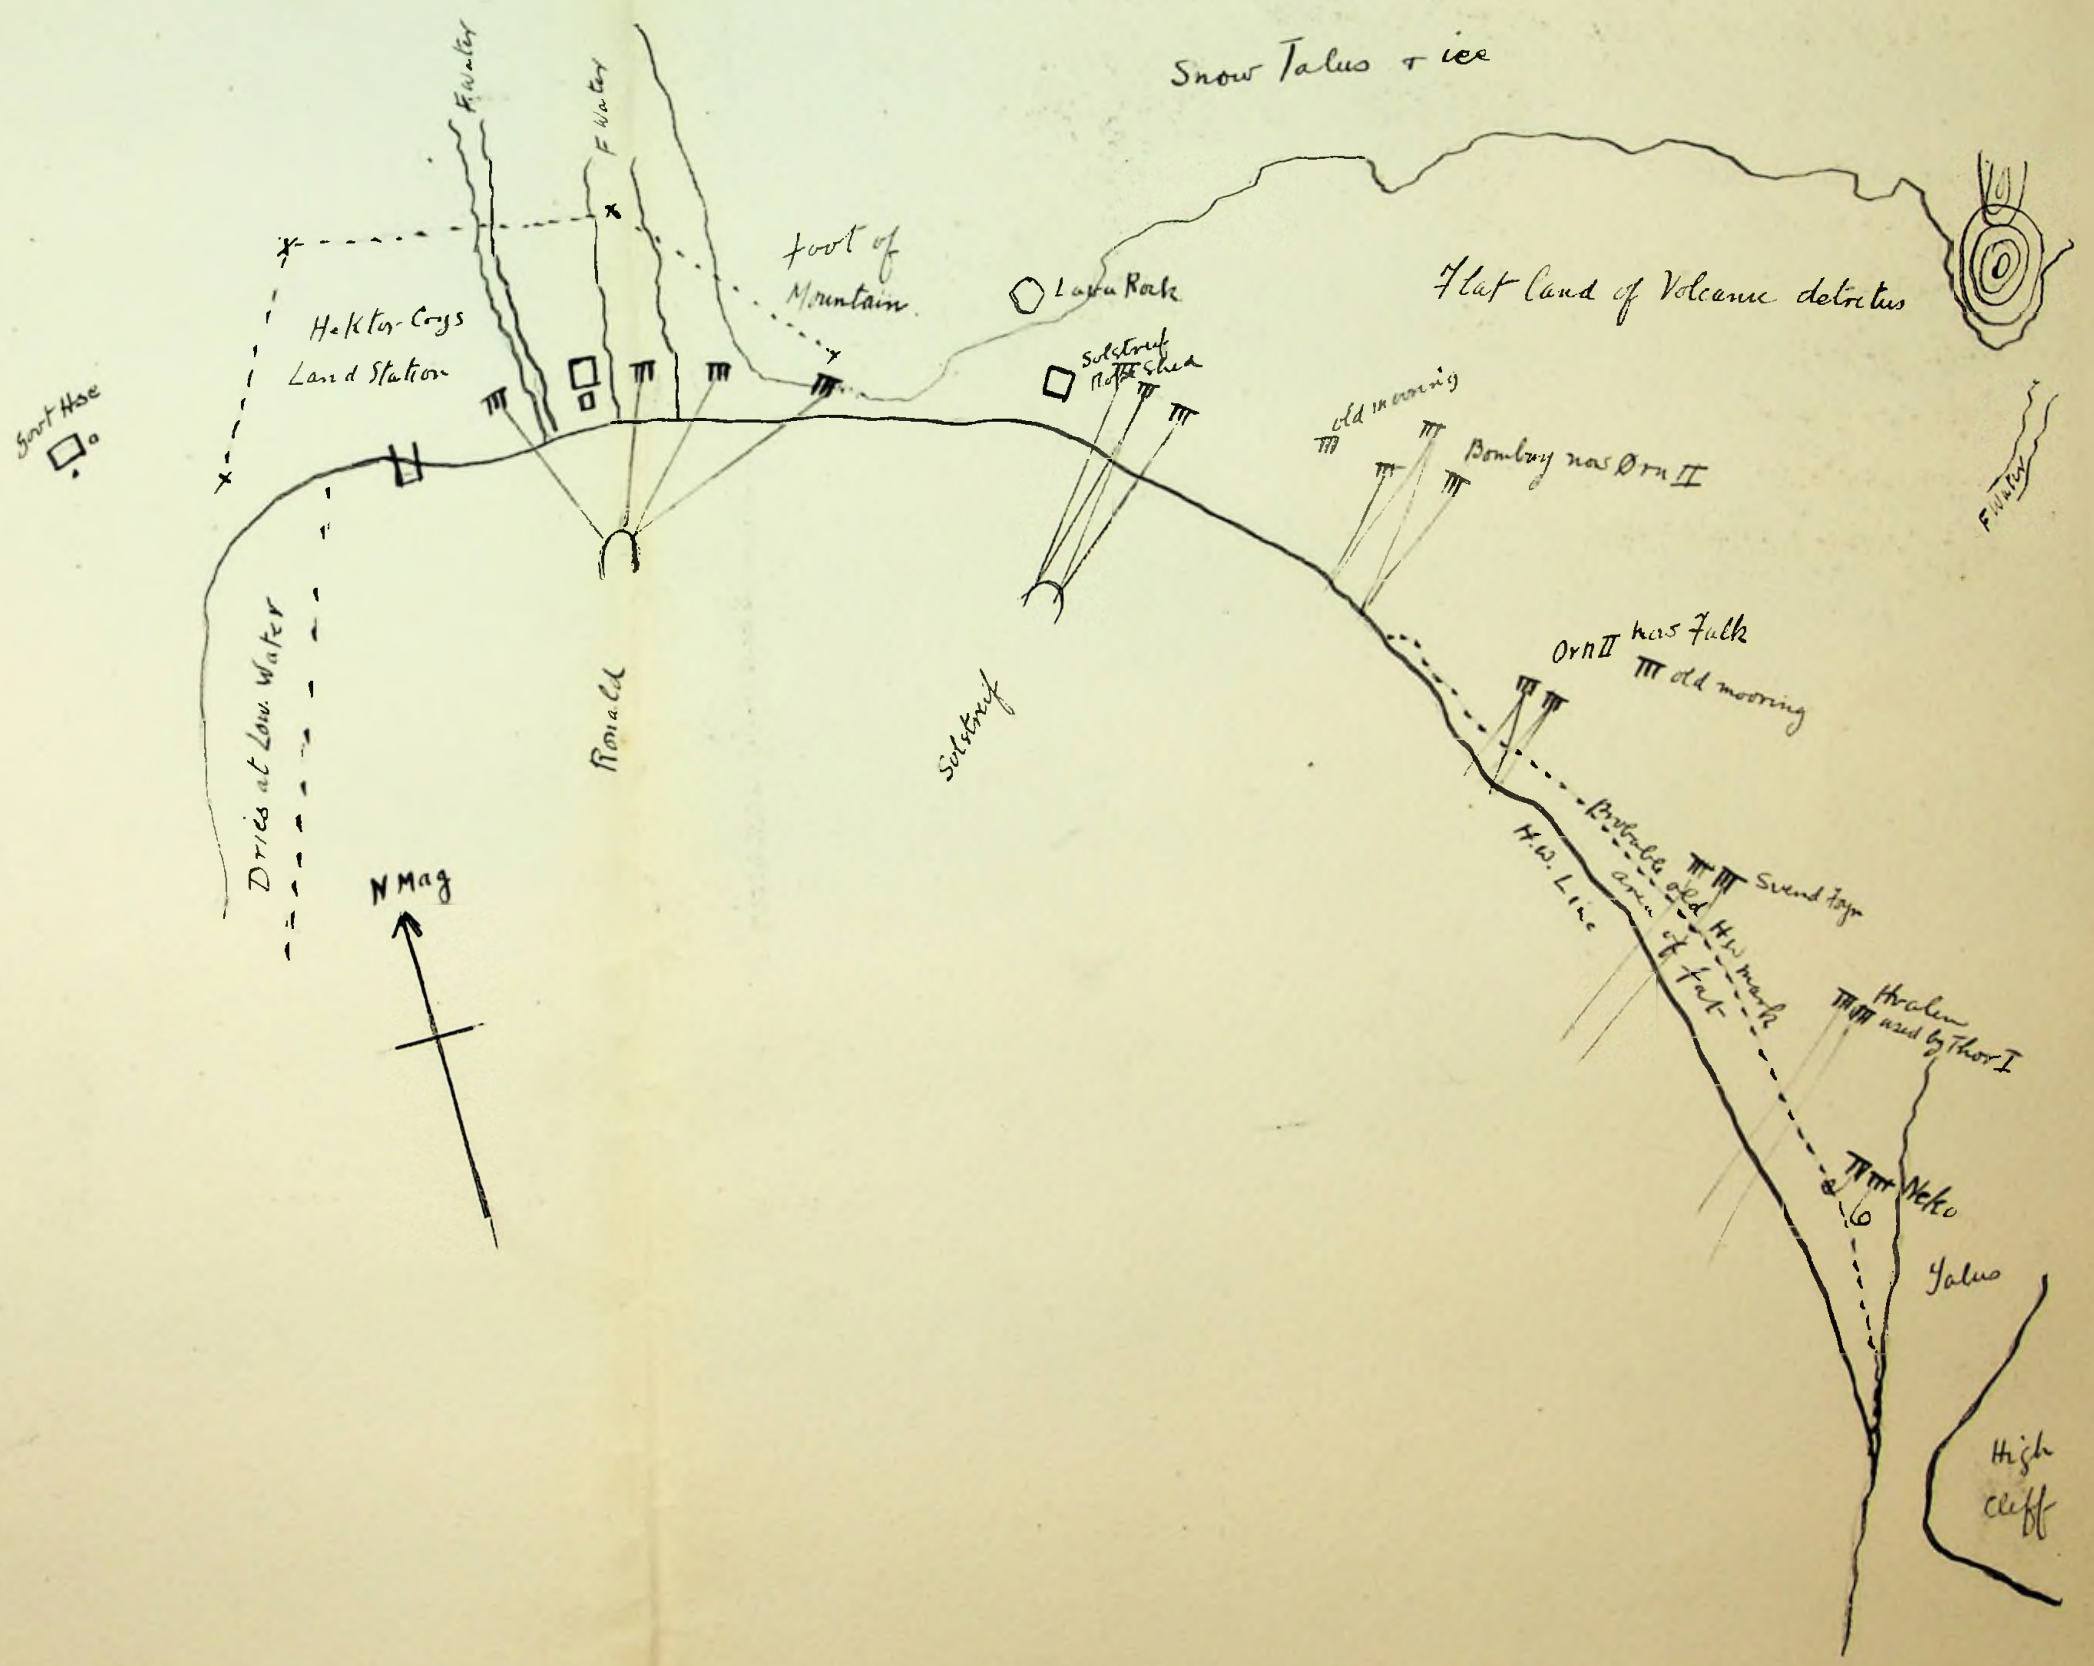 Snow Talus + ice
F. Water
F Water
Foot of
Mountain.
Lava Rock
Flat land of Volcanic detritus
Hektor Coys
Land Station
Govt Hse
Solstreif
Shed
old mooring
Bombay now Ørn II
F Water
Orn II now Falk
old mooring
Dries at Low. Water
Ronald
Solstreif
N Mag
H.W. Line
Probable old H W mark
area of fat
Svend Foyn
Hvalen
used by Thor I
Neko
Talus
High
Cliff